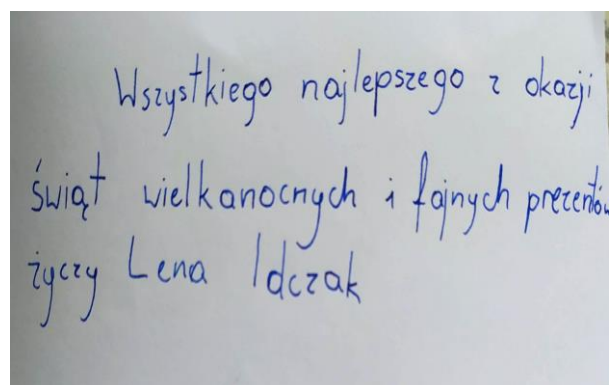 Wszystkiego najlepszego z okazji
świąt wielkanocnych i fajnych prezentów
życzy Lena Idczak